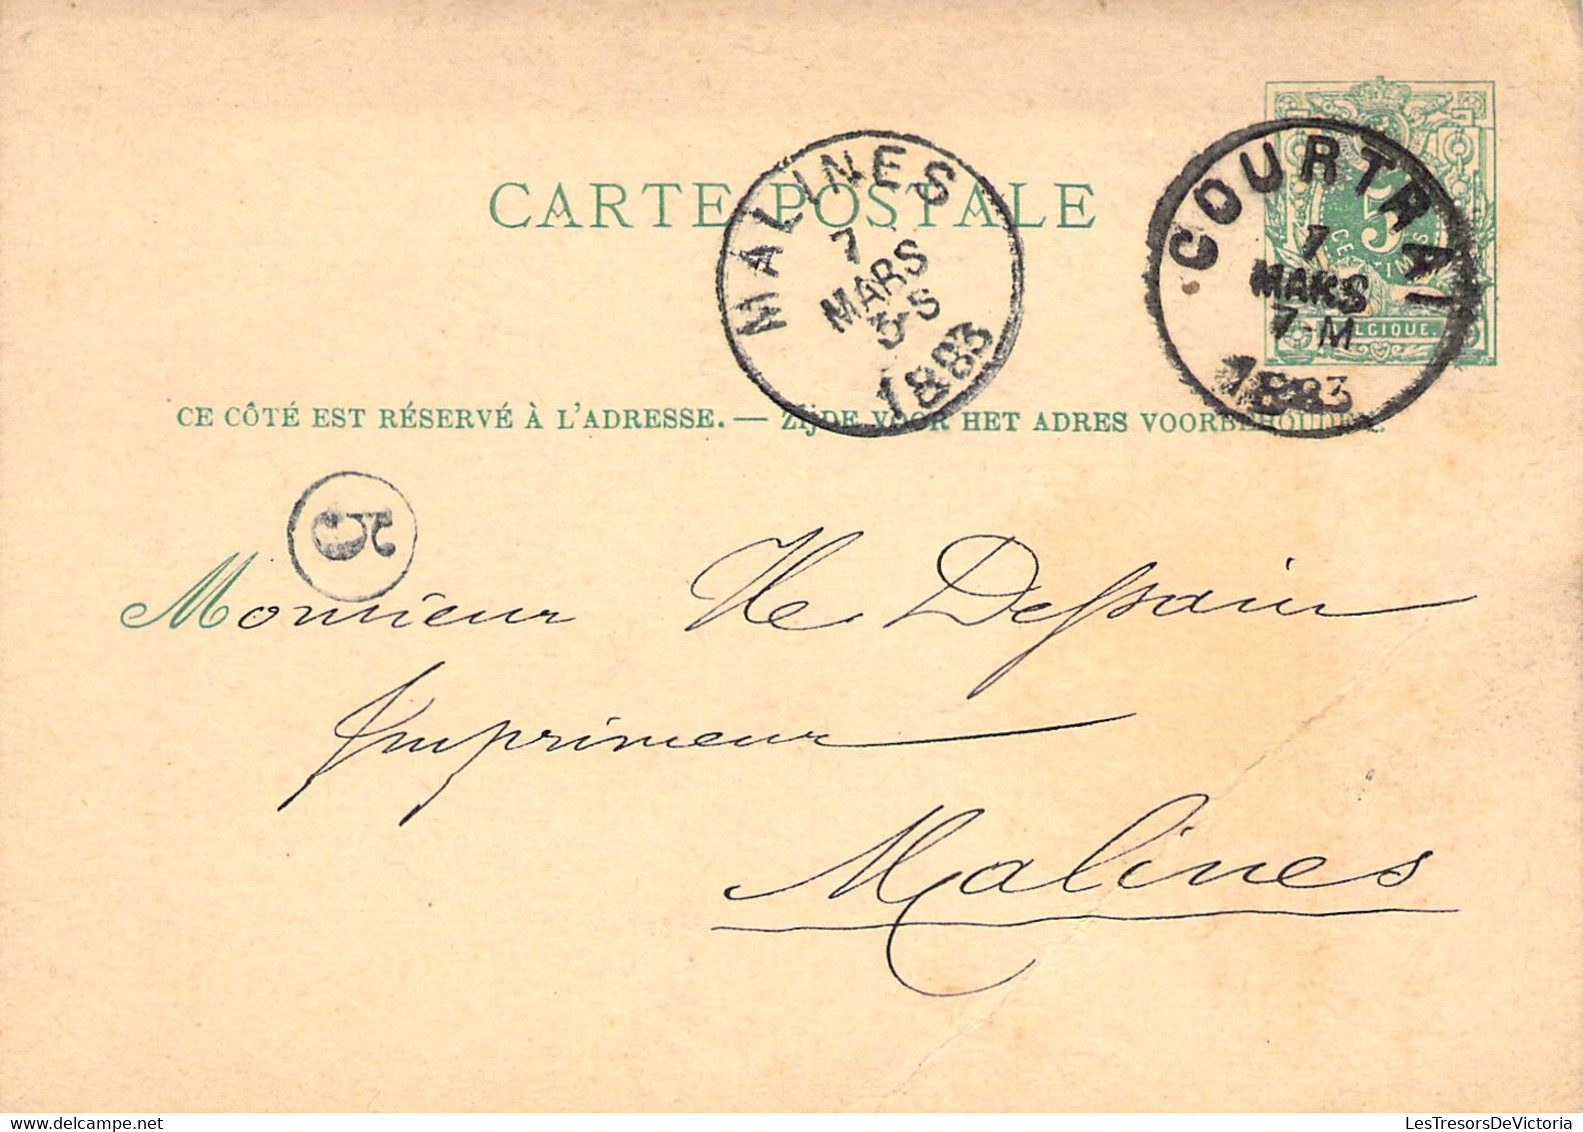 CARTE POSTALE
MALINES
7
MARS
5-S
1883
COURTRAI
MARS
7-M
1883
5
CENTIMES
BELGIQUE.
CE CÔTÉ EST RÉSERVÉ À L'ADRESSE. — ZIJDE VOOR HET ADRES VOORBEHOUDEN.
5
Monsieur H. Dessain
Imprimeur
Malines
LesTresorsDeVictoria